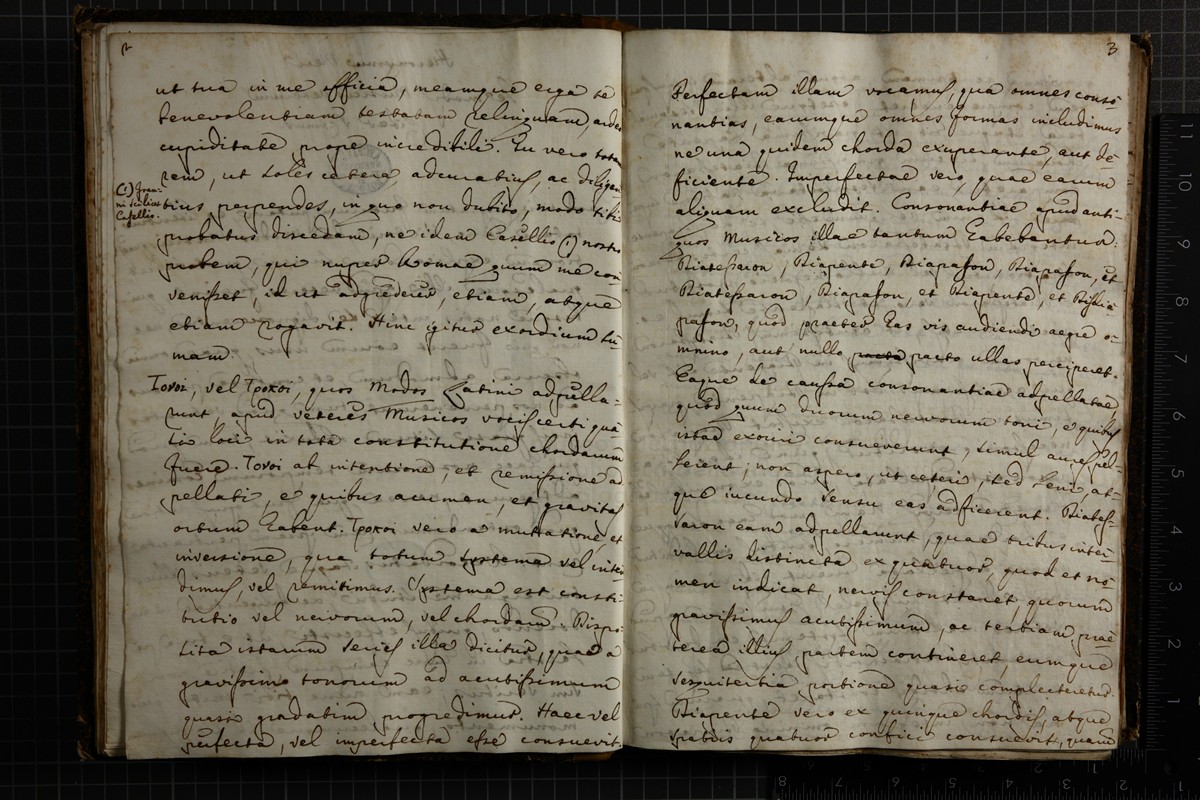 2
ut tua in me officia, meamque erga te
benevolentiam testatam relinquam, ardeo
cupiditate prope incredibili. Tu vero totam
rem, ut soles cetera, adcuratius, ac diligen-
tius perpendes, in quo non dubito, modo tibi
probatus discedam, ne idem Casellio (1) nostro
probem, qui nuper Romae quum me con-
venisset, id ut adgrederer, etiam, atque
etiam rogavit. Hinc igitur exordium su-
mam.
(1) Joan-
ni
Casellio.
Τονοι, vel Τροποι, quos Modos Latini adpella-
runt, apud veteres Musicos vocis certi qua-
si loci in tota constitutione chordarum
fuere. Τονοι ab intentione, et remissione ad
pellati, e quibus acumen, et gravitas
ortum habent. Τροποι vero a mutatione et
inversione, qua totum systema vel inten
dimus, vel remitimus. Systema est consti-
tutio vel nervorum, vel chordarum. Dispo-
sita istarum series illa dicitur, qua a
gravissimo tonorum ad acutissimum
quasi gradatim progredimur. Haec vel
perfecta, vel imperfecta esse consuevit.
3
Perfectam illam vocamus, qua omnes conso-
nantias, earumque omnes formas includimus
ne una quidem chorda exuperante, aut de-
ficiente. Imperfectae vero, quae earum
aliquam excludit. Consonantiae apud anti-
quos Musicos illae tantum habebantur.
Diatessaron, Diapente, Diapason, Diapason, et
Diatessaron, Diapason, et Diapente, et Disdia-
pason, quod praeter has vis audiendi aegre o-
mnino, aut nullo pacto pacto ullas perciperet.
Eaque de caussa consonantiae adpellatae,
quod quum duorum nervorum toni, e quibus
istae exoriri consueverunt, simul aures pel-
lerent, non aspero, ut ceteri, sed leni, at-
que iucundo sensu eas adficerent. Diates-
saron eam adpellarunt, quae tribus inter-
vallis distincta ex quatuor, quod et no-
men indicat, nervis constaret, quorum
gravissimus acutissimum, ac tertiam prae
terea illius partem contineret, eumque
sesquitertia portione quasi complecteretur.
Diapente vero ex quinque chordis, atque
spatiis quatuor confici consuevit, quam